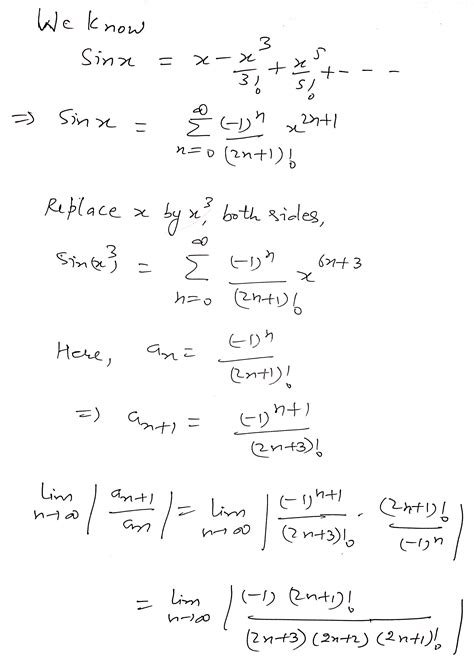 We know
Sin x = x - x^3/3! + x^5/5! + - - -
=> Sin x = ∑_{n=0}^{∞} (-1)^n/(2n+1)! x^{2n+1}
Replace x by x^3, both sides,
Sin(x^3) = ∑_{n=0}^{∞} (-1)^n/(2n+1)! x^{6n+3}
Here, a_n = (-1)^n/(2n+1)!
=> a_{n+1} = (-1)^{n+1}/(2n+3)!
Lim_{n→∞} |a_{n+1}/a_n| = Lim_{n→∞} |(-1)^{n+1}/(2n+3)! · (2n+1)!/(-1)^n|
= Lim_{n→∞} |(-1) (2n+1)!/((2n+3) (2n+2) (2n+1)!)|